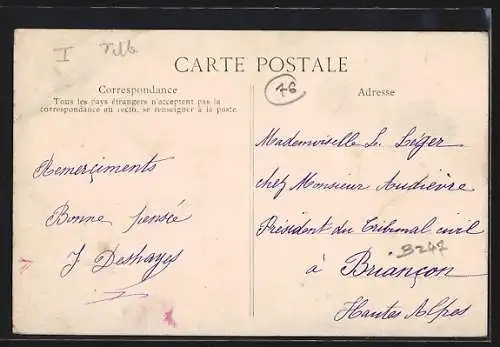 I
CARTE POSTALE
76
Correspondance
Tous les pays étrangers n'acceptent pas la
correspondance au recto, se renseigner à la poste.
Remerciments
Bonne pensée
J Deshayes
Adresse
Mademoiselle L. Léger
chez Monsieur Audièvre
Président du Tribunal civil
B247
à Briançon
Hautes Alpes